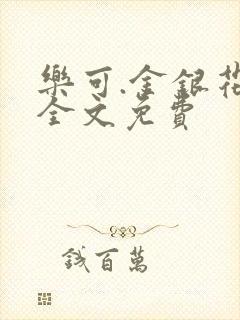 樂可.金銀花
全文免費
錢百萬